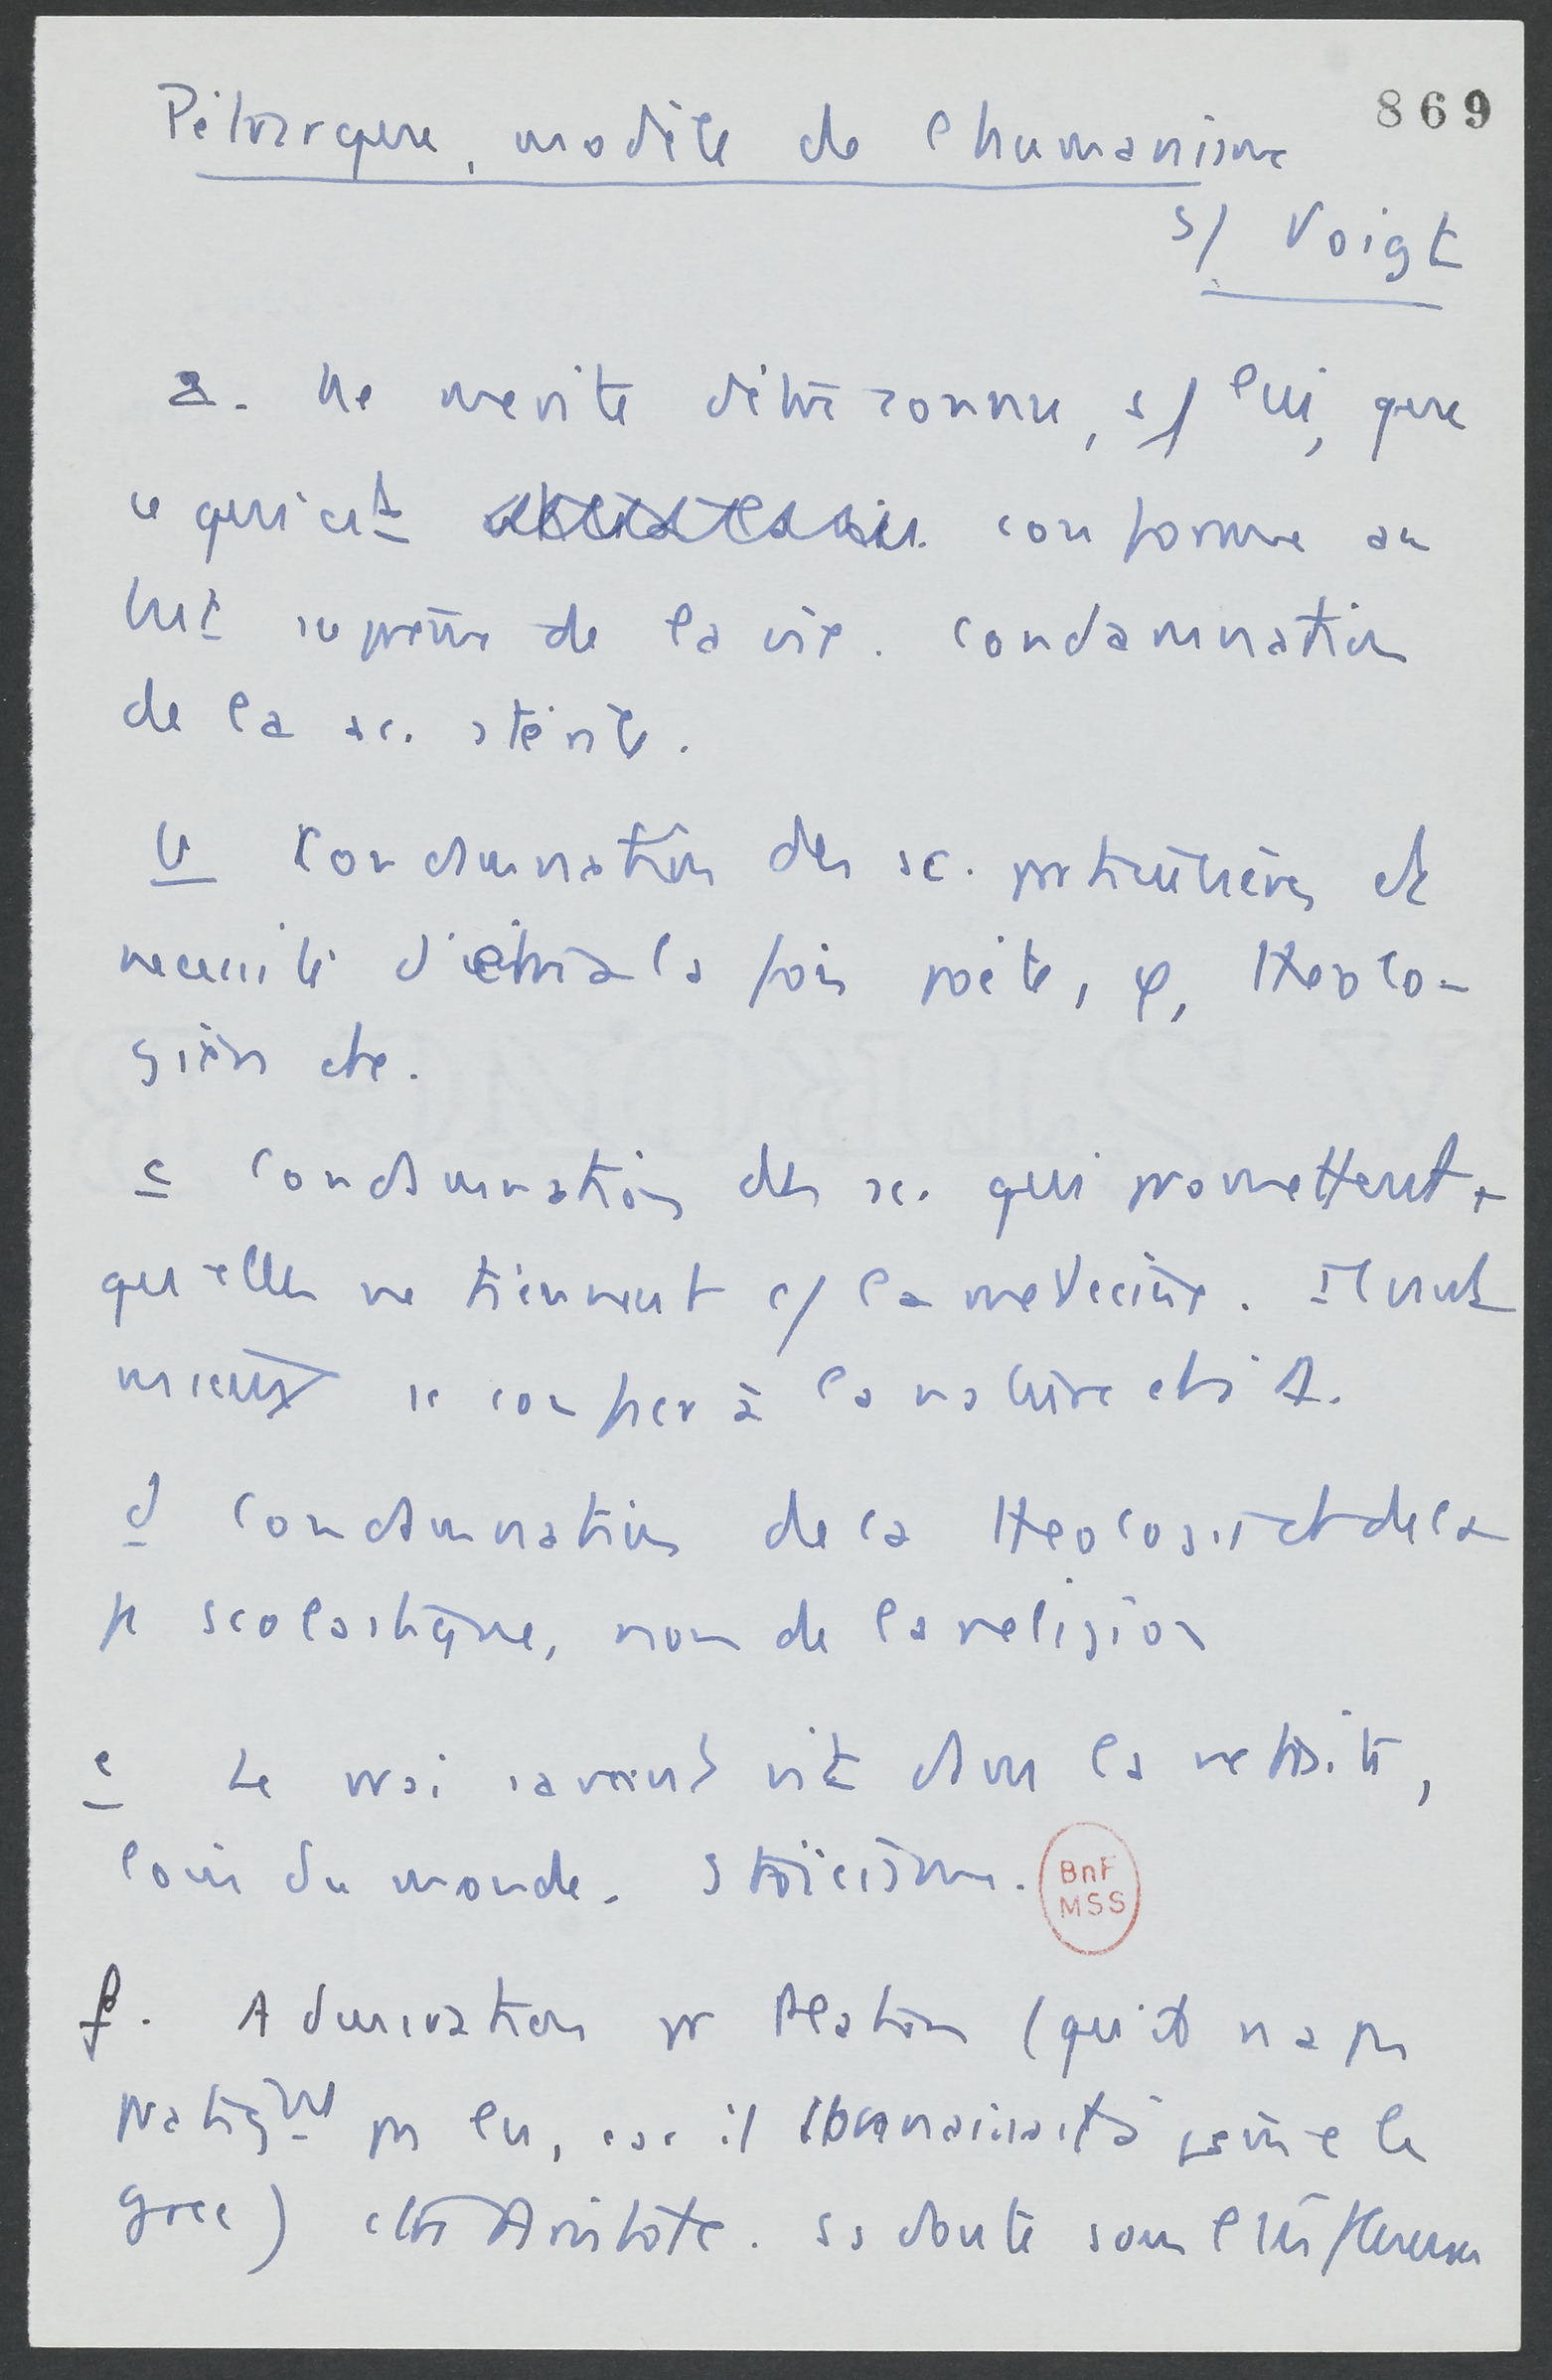 869
Pétrarque, modèle de l'humanisme
s/ Voigt
a. Ne merite d'être connu, s/ lui, que
ce qui est conforme au
but suprême de la vie. Condamnation
de la sc. stérile.
b Condamnation des sc. particulières et
necessité d'être à la fois poète, φ, theolo-
gien etc.
c Condamnation des sc. qui promettent +
qu'elles ne tiennent c/ la medecine. Il vaut
mieux se confier à la nature
d Condamnation de la theologie et de la
scolastique, non de la religion
e Le vrai savant vit dans la retraite,
loin du monde. Stoicisme.
BnF
MSS
f. Admiration pr Platon (qu'il n'a pas
pratiqut pas lu, car il connaissait à peine le
grec) ctre Aristote. ss doute sous l'influence